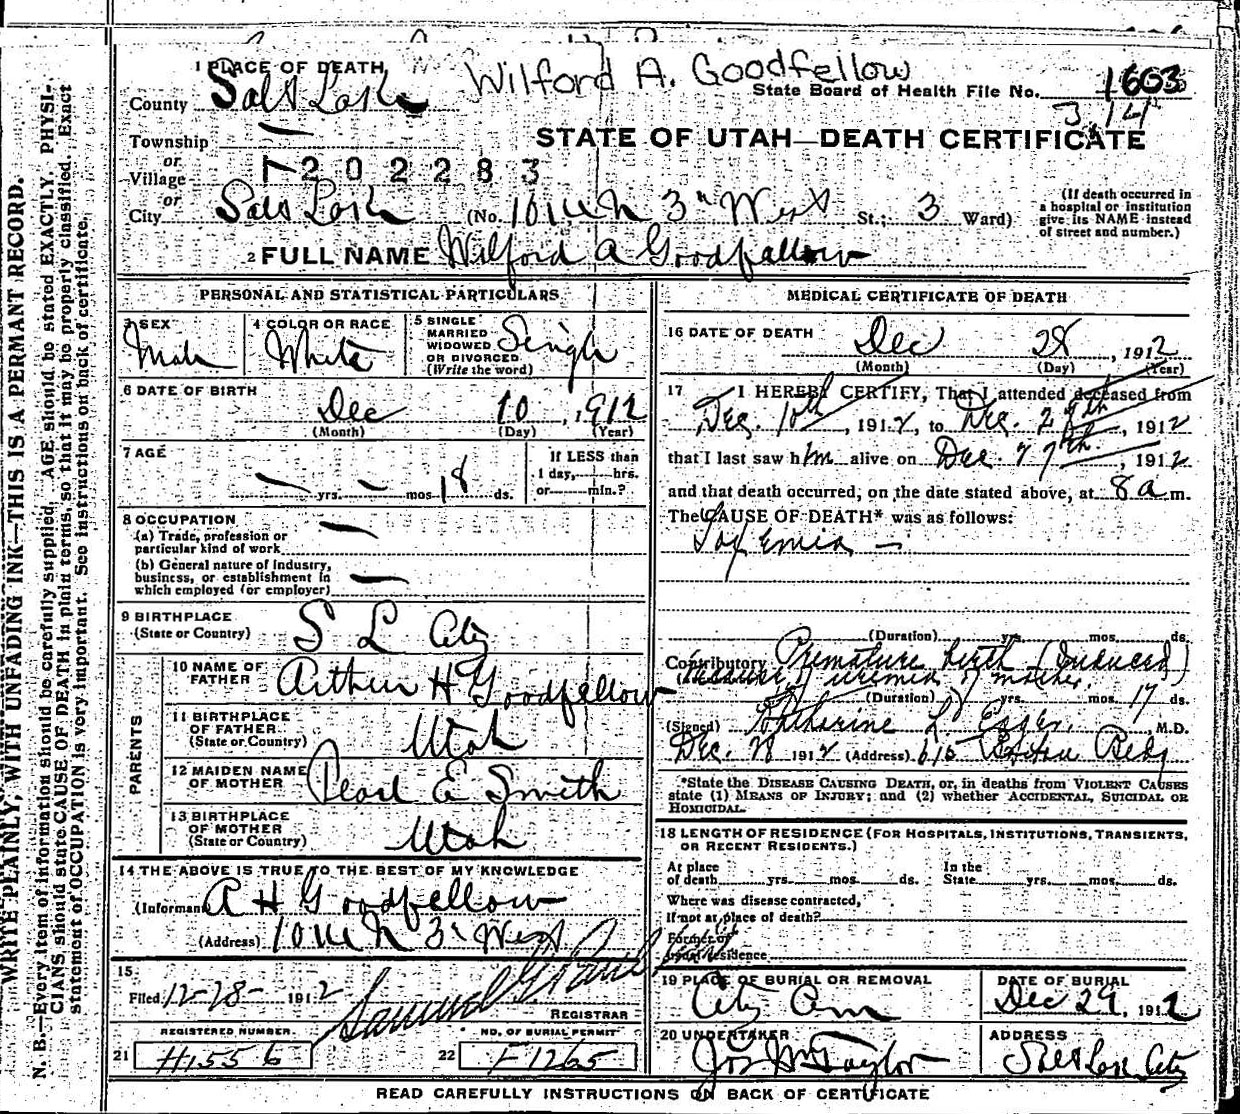 1 PLACE OF DEATH
Wilford A. Goodfellow
County Salt Lake
State Board of Health File No. 1603
314
Township —
STATE OF UTAH—DEATH CERTIFICATE
or
Village
202283
or
City Salt Lake (No. 3rd West St.; 3 Ward)
(If death occurred in a hospital or institution give its NAME instead of street and number.)
2 FULL NAME Wilford A Goodfellow
PERSONAL AND STATISTICAL PARTICULARS
3 SEX
Male
4 COLOR OR RACE
White
5 SINGLE
MARRIED
WIDOWED
OR DIVORCED
(Write the word)
Single
6 DATE OF BIRTH
Dec 10, 1912
(Month) (Day) (Year)
7 AGE
— yrs. — mos. 18 ds.
If LESS than
1 day, hrs.
or min.?
8 OCCUPATION
(a) Trade, profession or
particular kind of work —
(b) General nature of industry,
business, or establishment in
which employed (or employer) —
9 BIRTHPLACE
(State or Country) S L City
PARENTS
10 NAME OF
FATHER Arthur H Goodfellow
11 BIRTHPLACE
OF FATHER
(State or Country) Utah
12 MAIDEN NAME
OF MOTHER Pearl E Smith
13 BIRTHPLACE
OF MOTHER
(State or Country) Utah
14 THE ABOVE IS TRUE TO THE BEST OF MY KNOWLEDGE
(Informant) A H Goodfellow
(Address) 3r West
15
Filed 12-28- 1912 Samuel G Paul
REGISTRAR
REGISTERED NUMBER.
21 H1556
NO. OF BURIAL PERMIT
22 F1265
MEDICAL CERTIFICATE OF DEATH
16 DATE OF DEATH
Dec 28, 1912
(Month) (Day) (Year)
17 I HEREBY CERTIFY, That I attended deceased from
Dec. 10th, 1912, to Dec. 27th, 1912
that I last saw him alive on Dec. 27th, 1912
and that death occurred, on the date stated above, at 8 a m.
The CAUSE OF DEATH* was as follows:
Toxemia —
(Duration) yrs. mos. ds.
Contributory Premature birth (Induced)
because of uremia of mother.
(Duration) yrs. mos. 17 ds.
(Signed) Katherine L. M.D.
Dec. 28 1912 (Address) 615
*State the DISEASE CAUSING DEATH, or, in deaths from VIOLENT CAUSES
state (1) MEANS OF INJURY; and (2) whether ACCIDENTAL, SUICIDAL OR
HOMICIDAL.
18 LENGTH OF RESIDENCE (FOR HOSPITALS, INSTITUTIONS, TRANSIENTS,
OR RECENT RESIDENTS.)
At place
of death yrs. mos. ds.
In the
State yrs. mos. ds.
Where was disease contracted,
if not at place of death?
Former or
usual residence
19 PLACE OF BURIAL OR REMOVAL
City Cem
DATE OF BURIAL
Dec 29, 1912
20 UNDERTAKER
Jos Wm Taylor
ADDRESS
Salt Lake City
READ CAREFULLY INSTRUCTIONS ON BACK OF CERTIFICATE
WRITE PLAINLY, WITH UNFADING INK—THIS IS A PERMANT RECORD.
N. B.—Every item of information should be carefully supplied. AGE should be stated EXACTLY. PHYSI-
CIANS should state CAUSE OF DEATH in plain terms, so that it may be properly classified. Exact
statement of OCCUPATION is very important. See instructions on back of certificate.